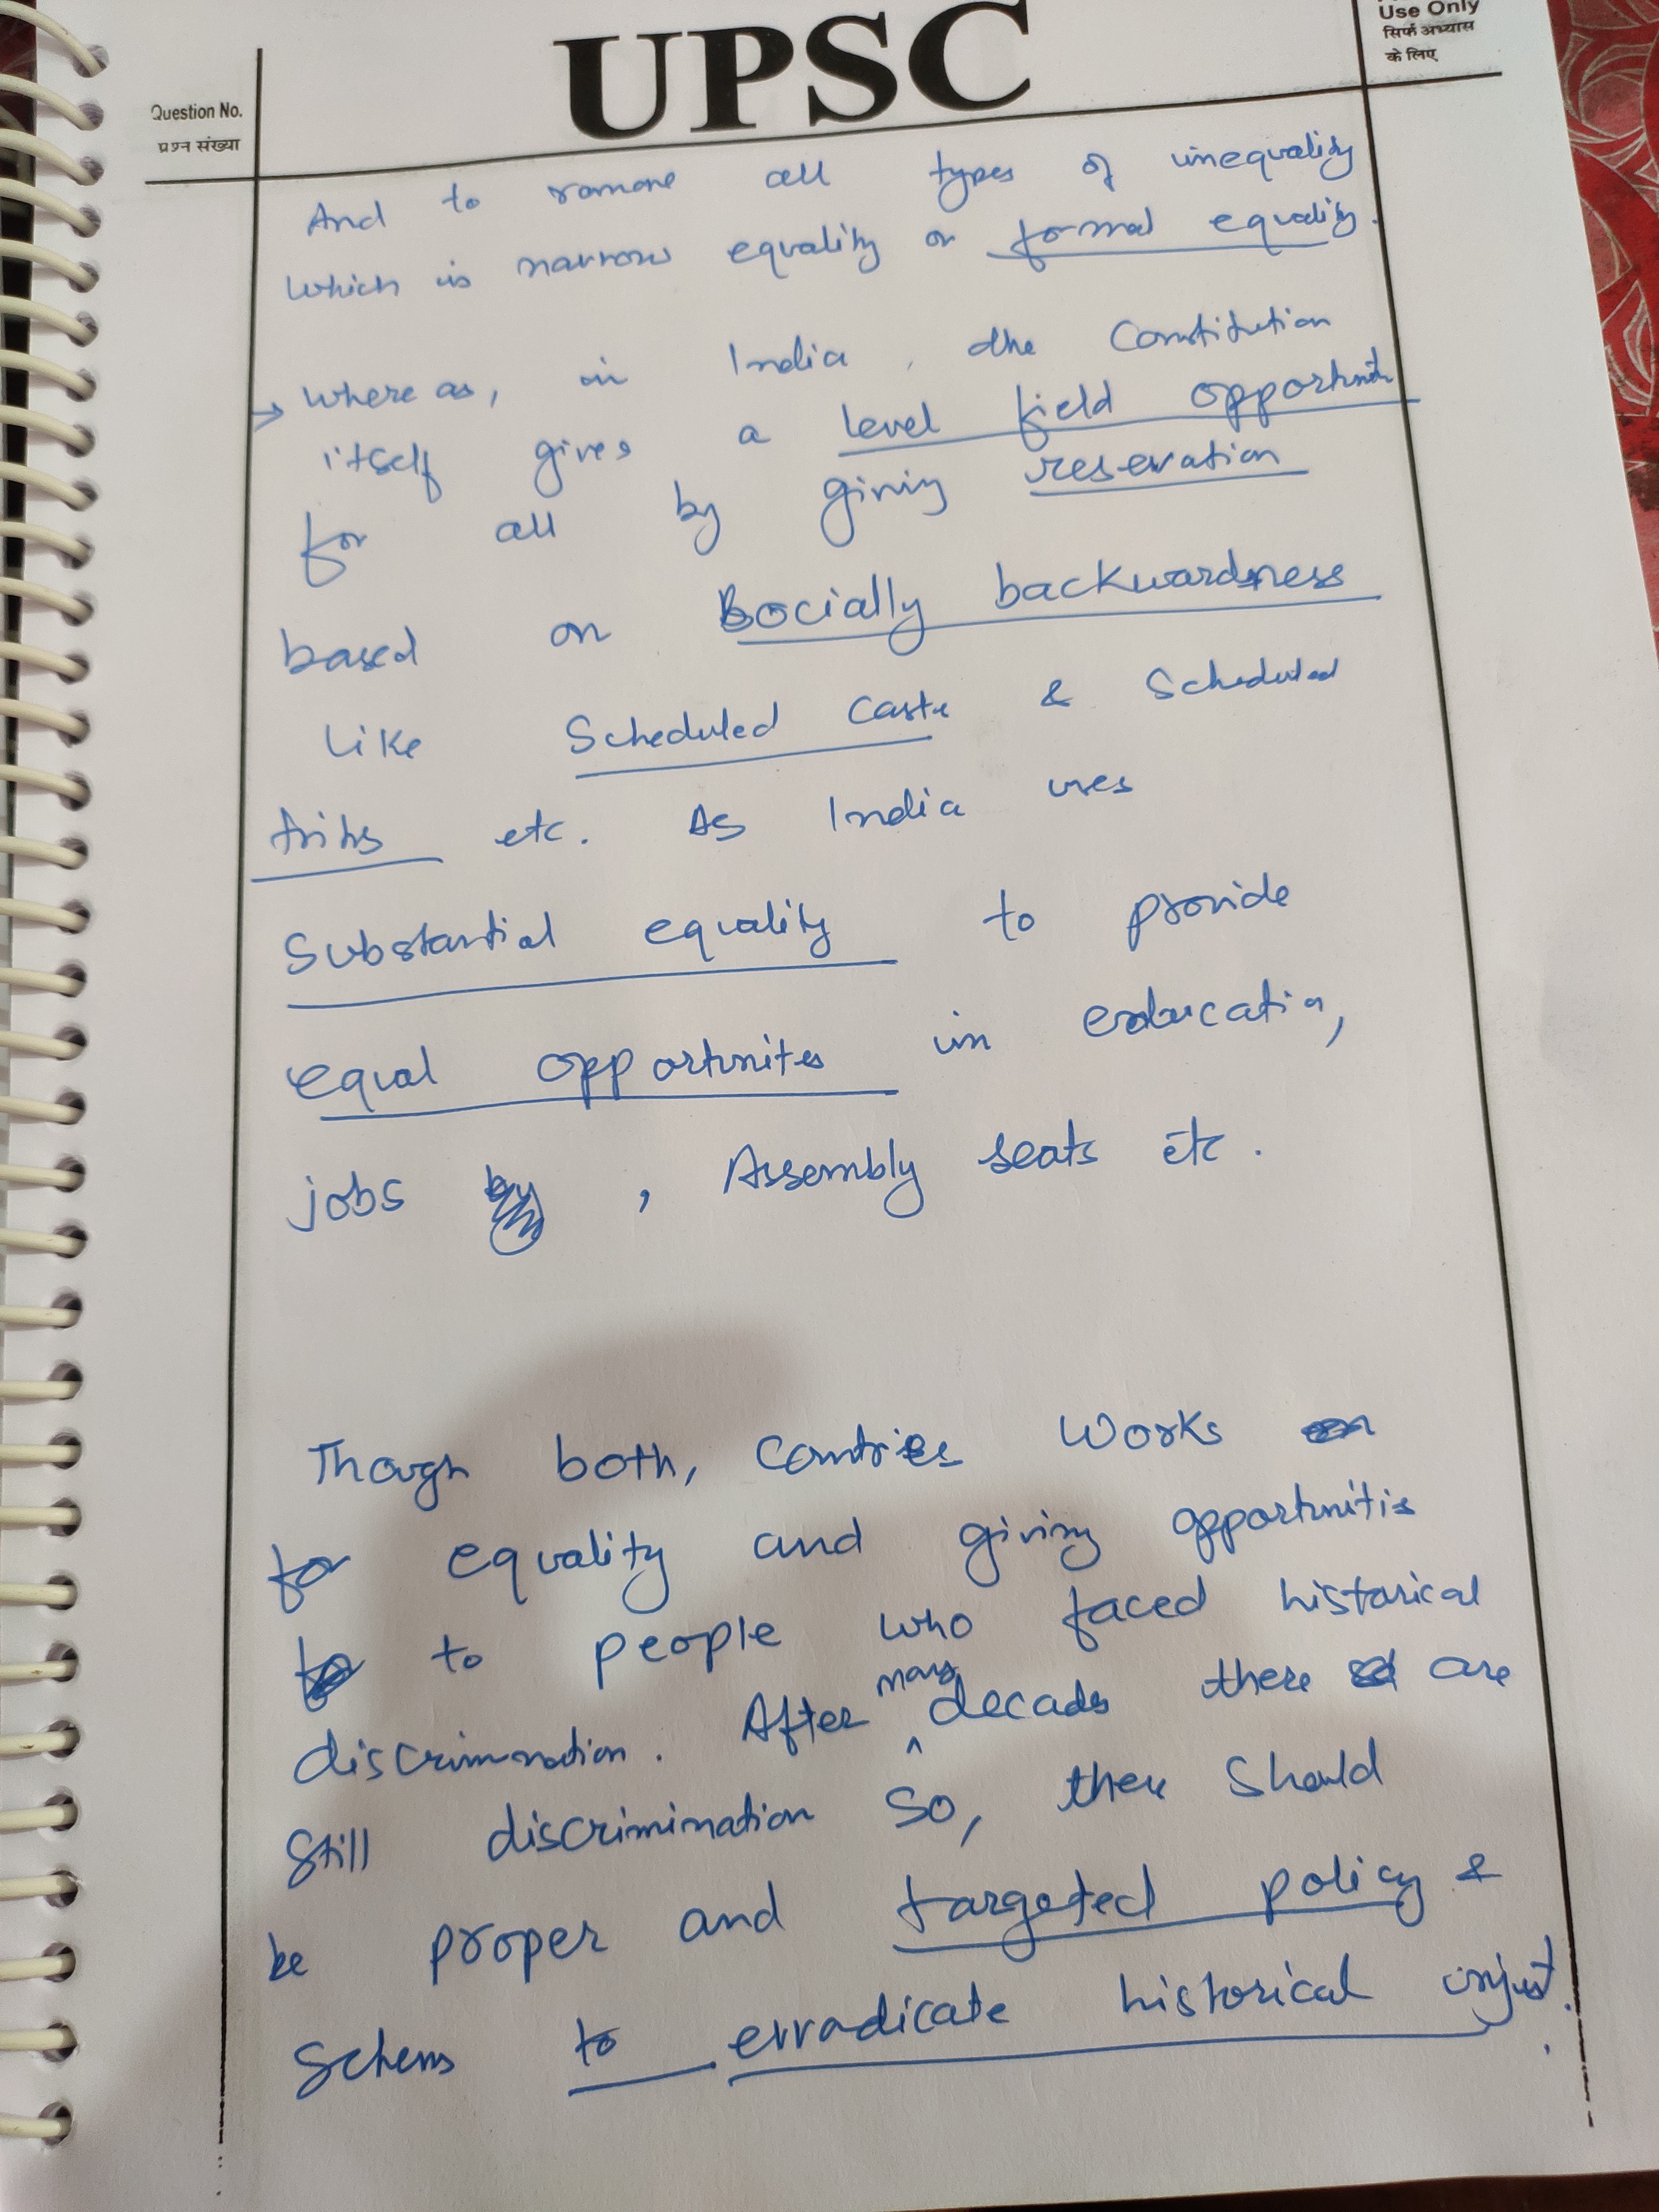 UPSC
Use Only
सिर्फ अभ्यास
के लिए
Question No.
प्रश्न संख्या
And to remove all types of inequality
Which is narrow equality or formal equality.
→ Where as, in India, the Constitution
itself gives a level field opportunity
for all by giving reservation
based on Socially backwardness
Like Scheduled Caste & Scheduled
tribes etc. As India uses
Substantial equality to provide
equal opportunites in education,
jobs , Assembly seats etc.
Though both, Contries Works
for equality and giving opportunitis
to people who faced historical
discrimnation. After many decads there are
Still discrimination so, there Should
be proper and targeted policy &
Schems to erradicate historical injust.